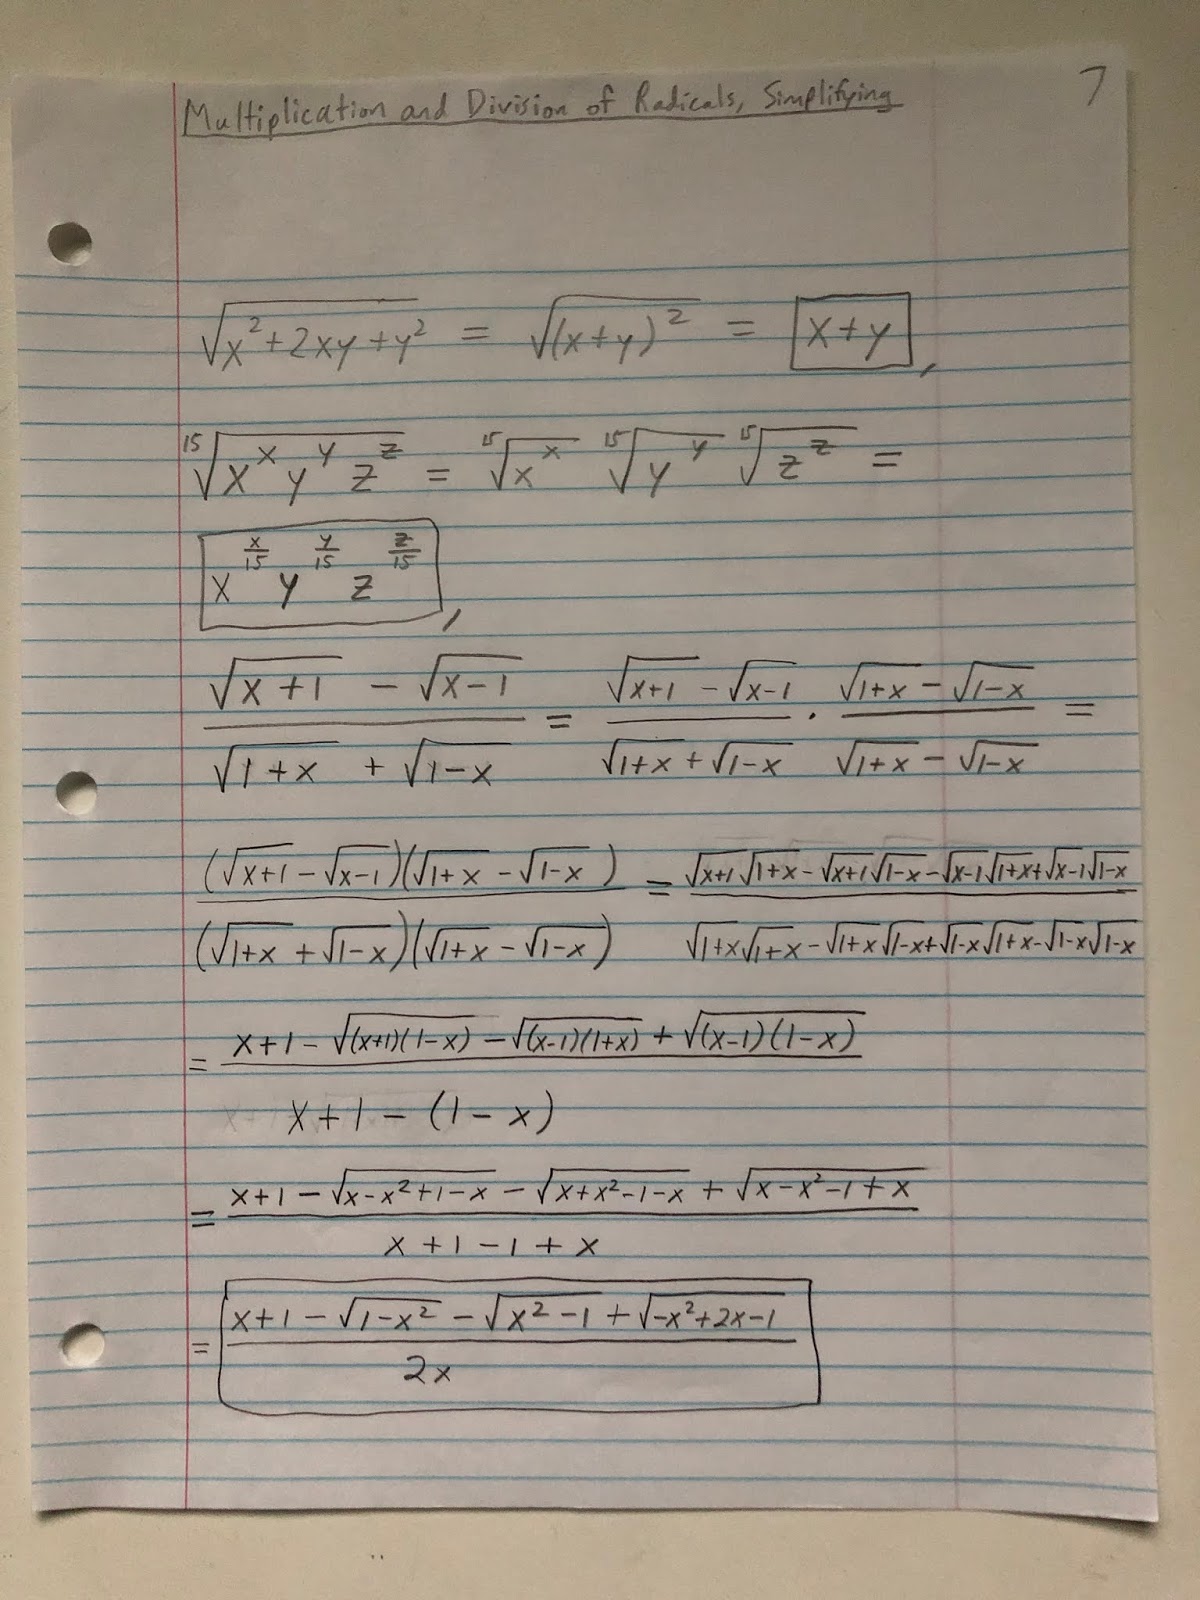 Multiplication and Division of Radicals, Simplifying 7
√(x²+2xy+y²) = √((x+y)²) = x+y,
¹⁵√(x^x y^y z^z) = ¹⁵√(x^x) ¹⁵√(y^y) ¹⁵√(z^z) =
x^(x/15) y^(y/15) z^(z/15),
(√(x+1) - √(x-1))/(√(1+x) + √(1-x)) = (√(x+1) - √(x-1))/(√(1+x) + √(1-x)) · (√(1+x) - √(1-x))/(√(1+x) - √(1-x)) =
((√(x+1) - √(x-1))(√(1+x) - √(1-x)))/((√(1+x) + √(1-x))(√(1+x) - √(1-x))) = (√(x+1)√(1+x) - √(x+1)√(1-x) - √(x-1)√(1+x) + √(x-1)√(1-x))/(√(1+x)√(1+x) - √(1+x)√(1-x) + √(1-x)√(1+x) - √(1-x)√(1-x))
= (x+1 - √((x+1)(1-x)) - √((x-1)(1+x)) + √((x-1)(1-x)))/(x+1 - (1-x))
= (x+1 - √(x-x²+1-x) - √(x+x²-1-x) + √(x-x²-1+x))/(x+1-1+x)
= (x+1 - √(1-x²) - √(x²-1) + √(-x²+2x-1))/(2x)